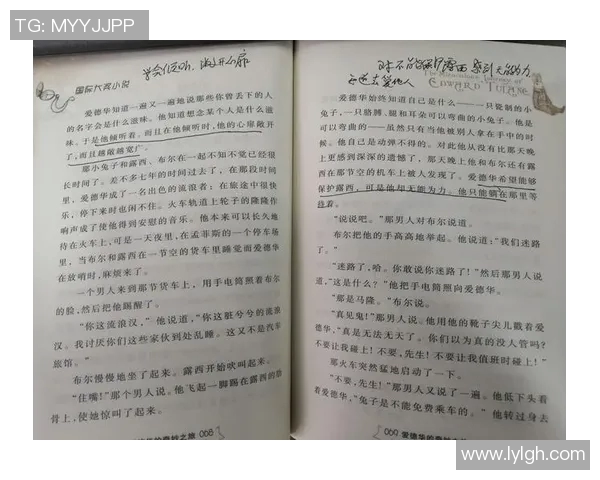 TG: MYYJJPP
学会倾听，敞开心扉
国际大奖小说
爱德华知道一遍又一遍地说那些你曾丢下的人
的名字会是什么滋味。他知道想念某个人是什么滋
味。于是他倾听着。而且在他倾听时，他的心扉敞开
了，而且越敞越宽广。
那小兔子和露西、布尔在一起不知不觉已经很
长时间了。差不多七年的时间过去了，在那段时间
里，爱德华成了一名出色的流浪者；在旅途中很快
乐，停下来时也闲不住。火车轨道上轮子的隆隆作
响声成了使他得到安慰的音乐。他本来可以长久地
待在火车上，可是一天夜里，在孟菲斯的一个停车场
里，当布尔和露西在一节空的货车里睡觉而爱德华
在放哨时，麻烦来了。
一个男人来到那节货车上，用手电筒照着布尔
的脸，然后把他踢醒了。
“你这流浪汉，”他说道，“你这脏兮兮的流浪
汉。我讨厌你们这些家伙到处乱睡。这又不是汽车
旅馆。”
布尔慢慢地坐了起来。露西开始吠叫起来。
“住嘴！”那个男人说。他飞起一脚踢在露西的肋
骨上，使她惊叫了起来。
德华的奇妙之旅 068
对不能保护露西感到无能为力
The Miraculous Journey of
EDWARD TULANE
爱德华始终知道自己是什么——一只瓷制的小
兔子，一只胳膊、腿和耳朵可以弯曲的小兔子。他是
可以弯曲的——虽然只有当他被别人拿在手中的时
候。他自己是动弹不得的。对此他从没有比那天晚
上更感到深深的遗憾了，那天晚上他和布尔还有露
西在那节空的机车上被人发现了。爱德华希望能够
保护露西，可是他却无能为力。他只能躺在那里等
待着。
“说说吧。”那男人对布尔说道。
布尔把他的手高高地举起。他说道：“我们迷路
了。”
“迷路了，哈。你敢说你迷路了！”然后那男人说
道，“这是什么？”他把手电筒照向爱德华。
“那是马隆。”布尔说。
“真见鬼！”那男人说。他用他的靴子尖儿戳着爱
德华，“真是无法无天了。你们以为真的没人管吗？
不要让我碰上！不要，先生！不要让我值班时碰上！”
那火车突然猛地启动了一下。
“不要，先生！”那男人又说了一遍。他低下头看
着爱德华，“兔子是不能免费乘车的。”他转过身去
069 爱德华的奇妙之
www.lylgh.com